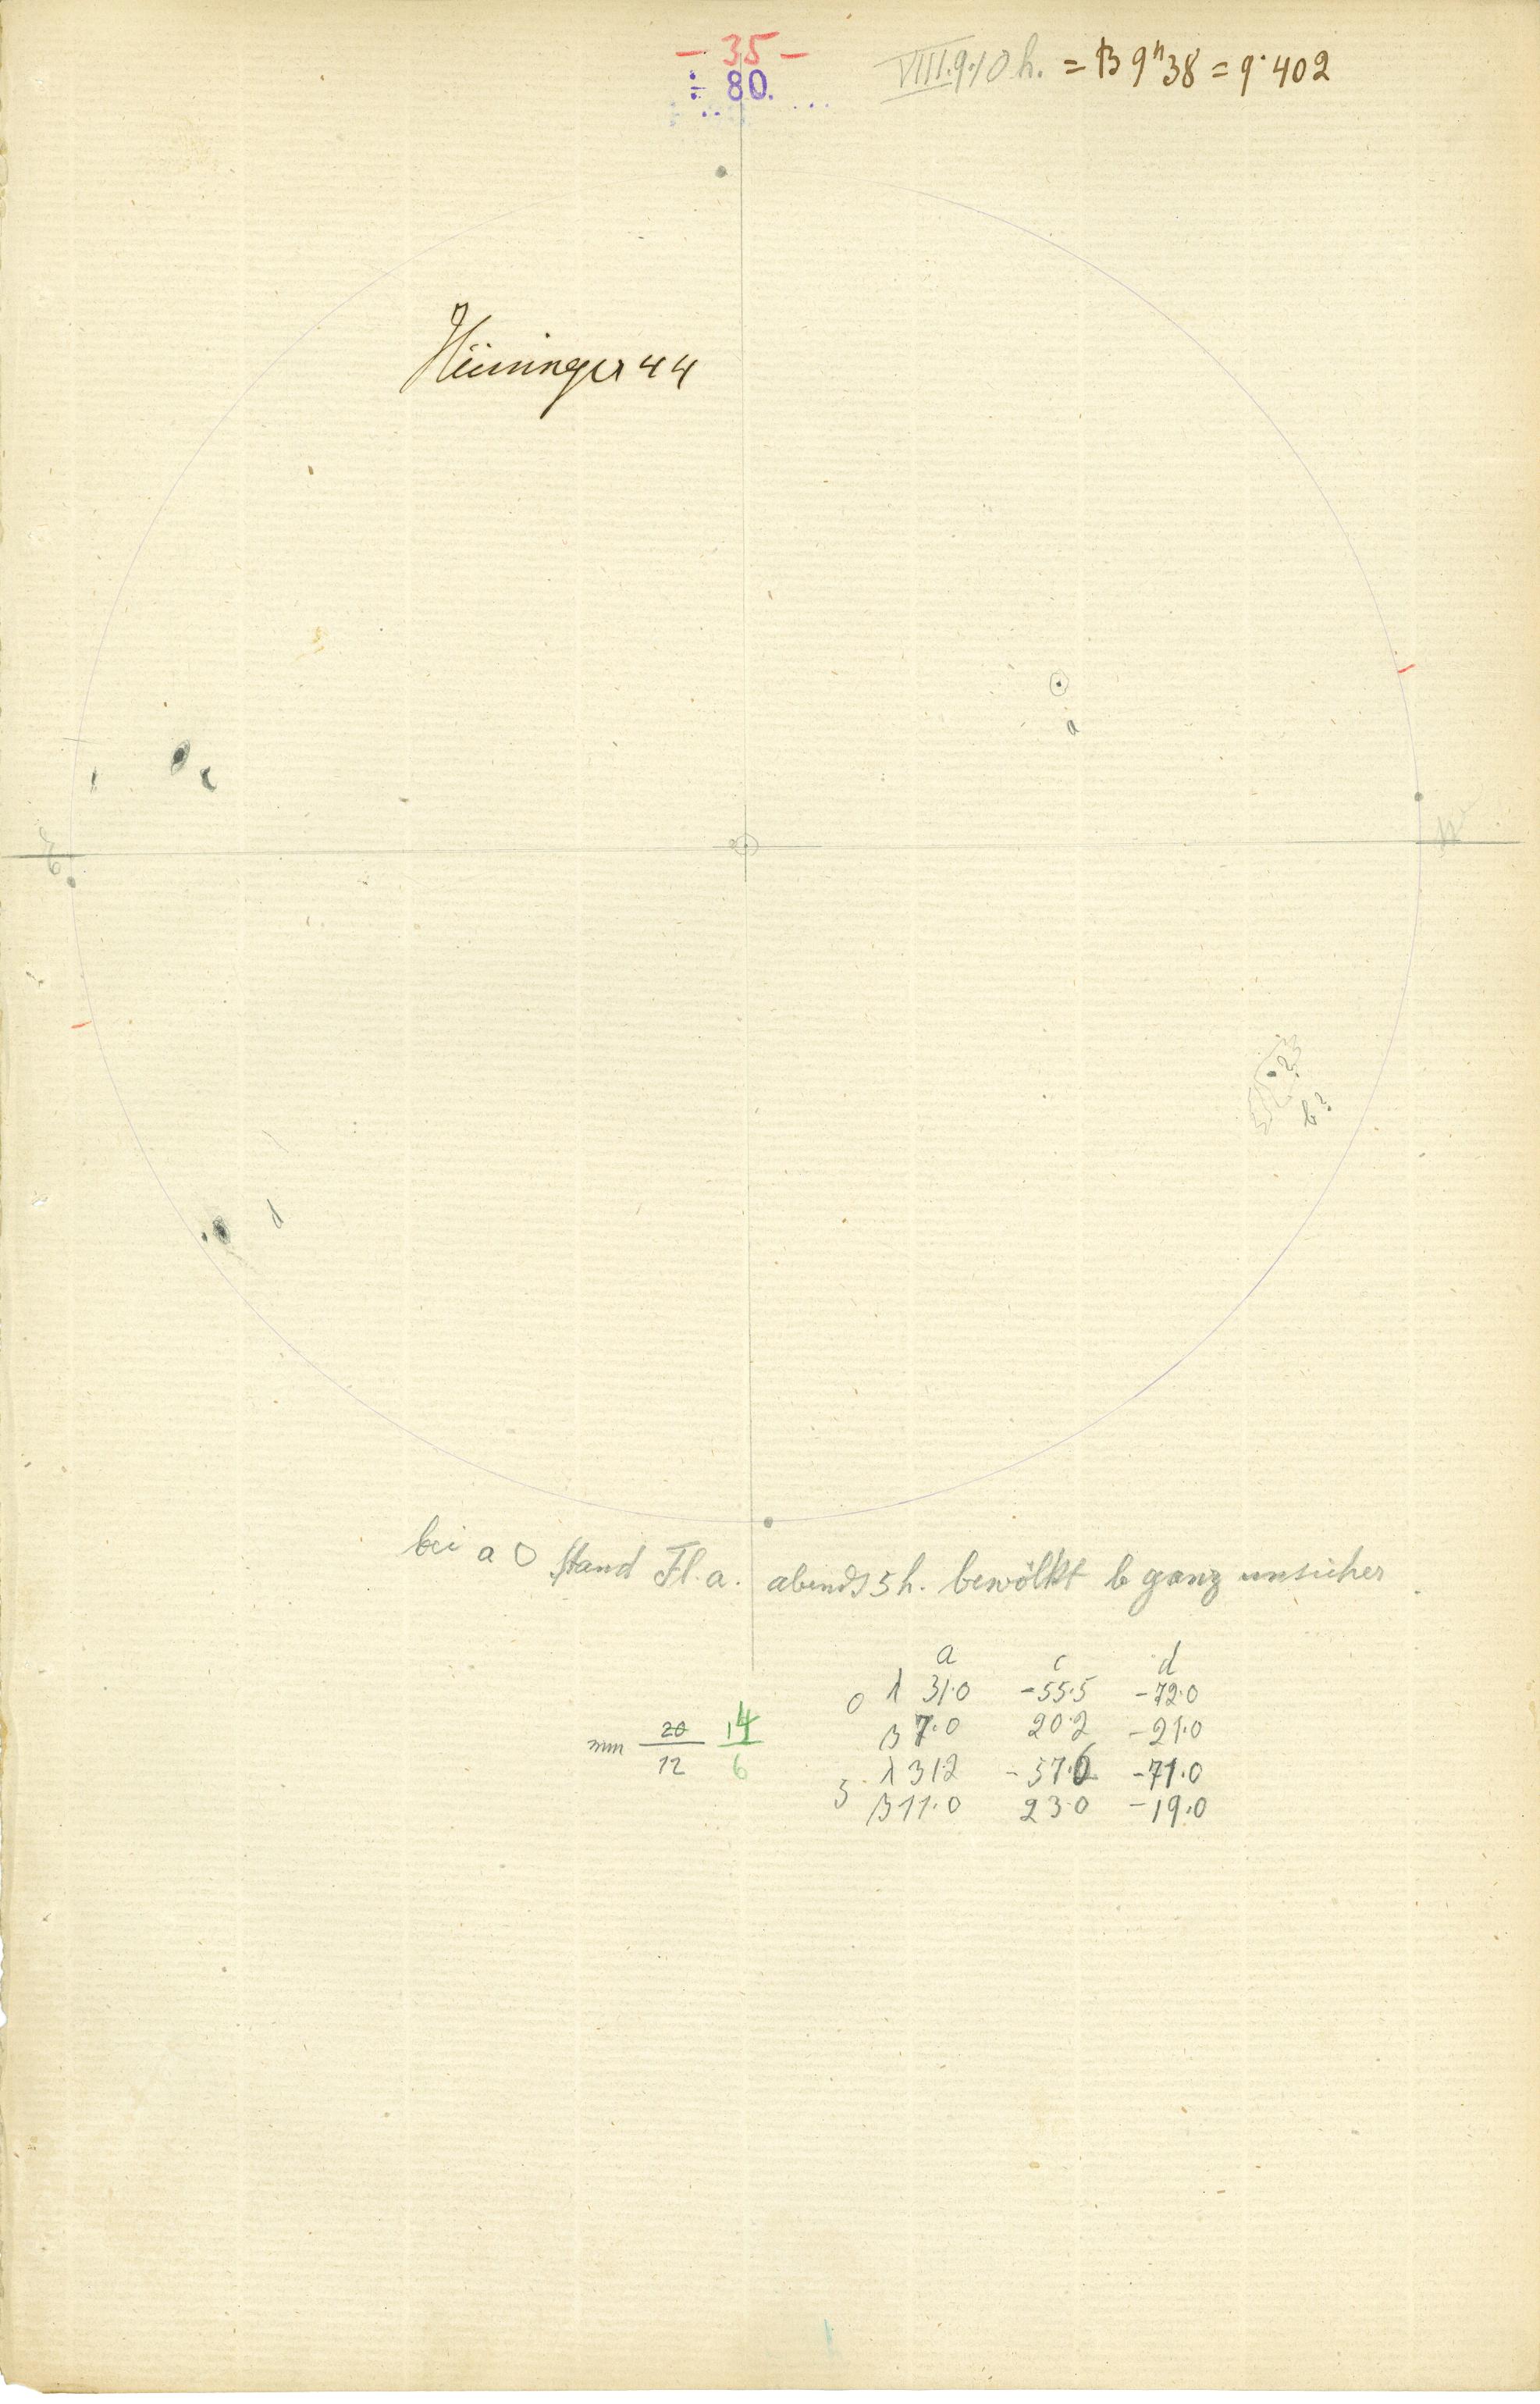 - 35 -
÷ 80.
VIII.9.10 h. = B 9h38 = 9.402
Hüninger 44
a
c
b?
d
bei a O stand Fl. a. abends 5 h. bewölkt b ganz unsicher
a c d
0 λ 31.0 -55.5 -72.0
β 7.0 20.2 -21.0
5 λ 31.2 -57.6 -71.0
β 11.0 23.0 -19.0
20 14
12 6